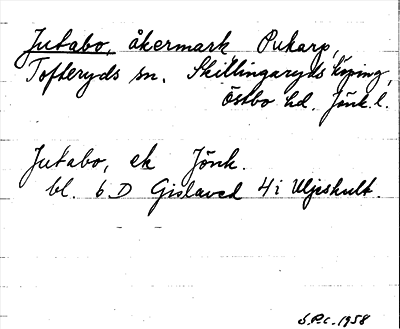 Jutabo, åkermark Pukarp,
Tofteryds sn. Skillingaryds köping,
Östbo hd. Jönk. l.
Jutabo, ek Jönk.
bl. 6 D Gislaved 4 i Uljeshult.
S.P.C. 1958